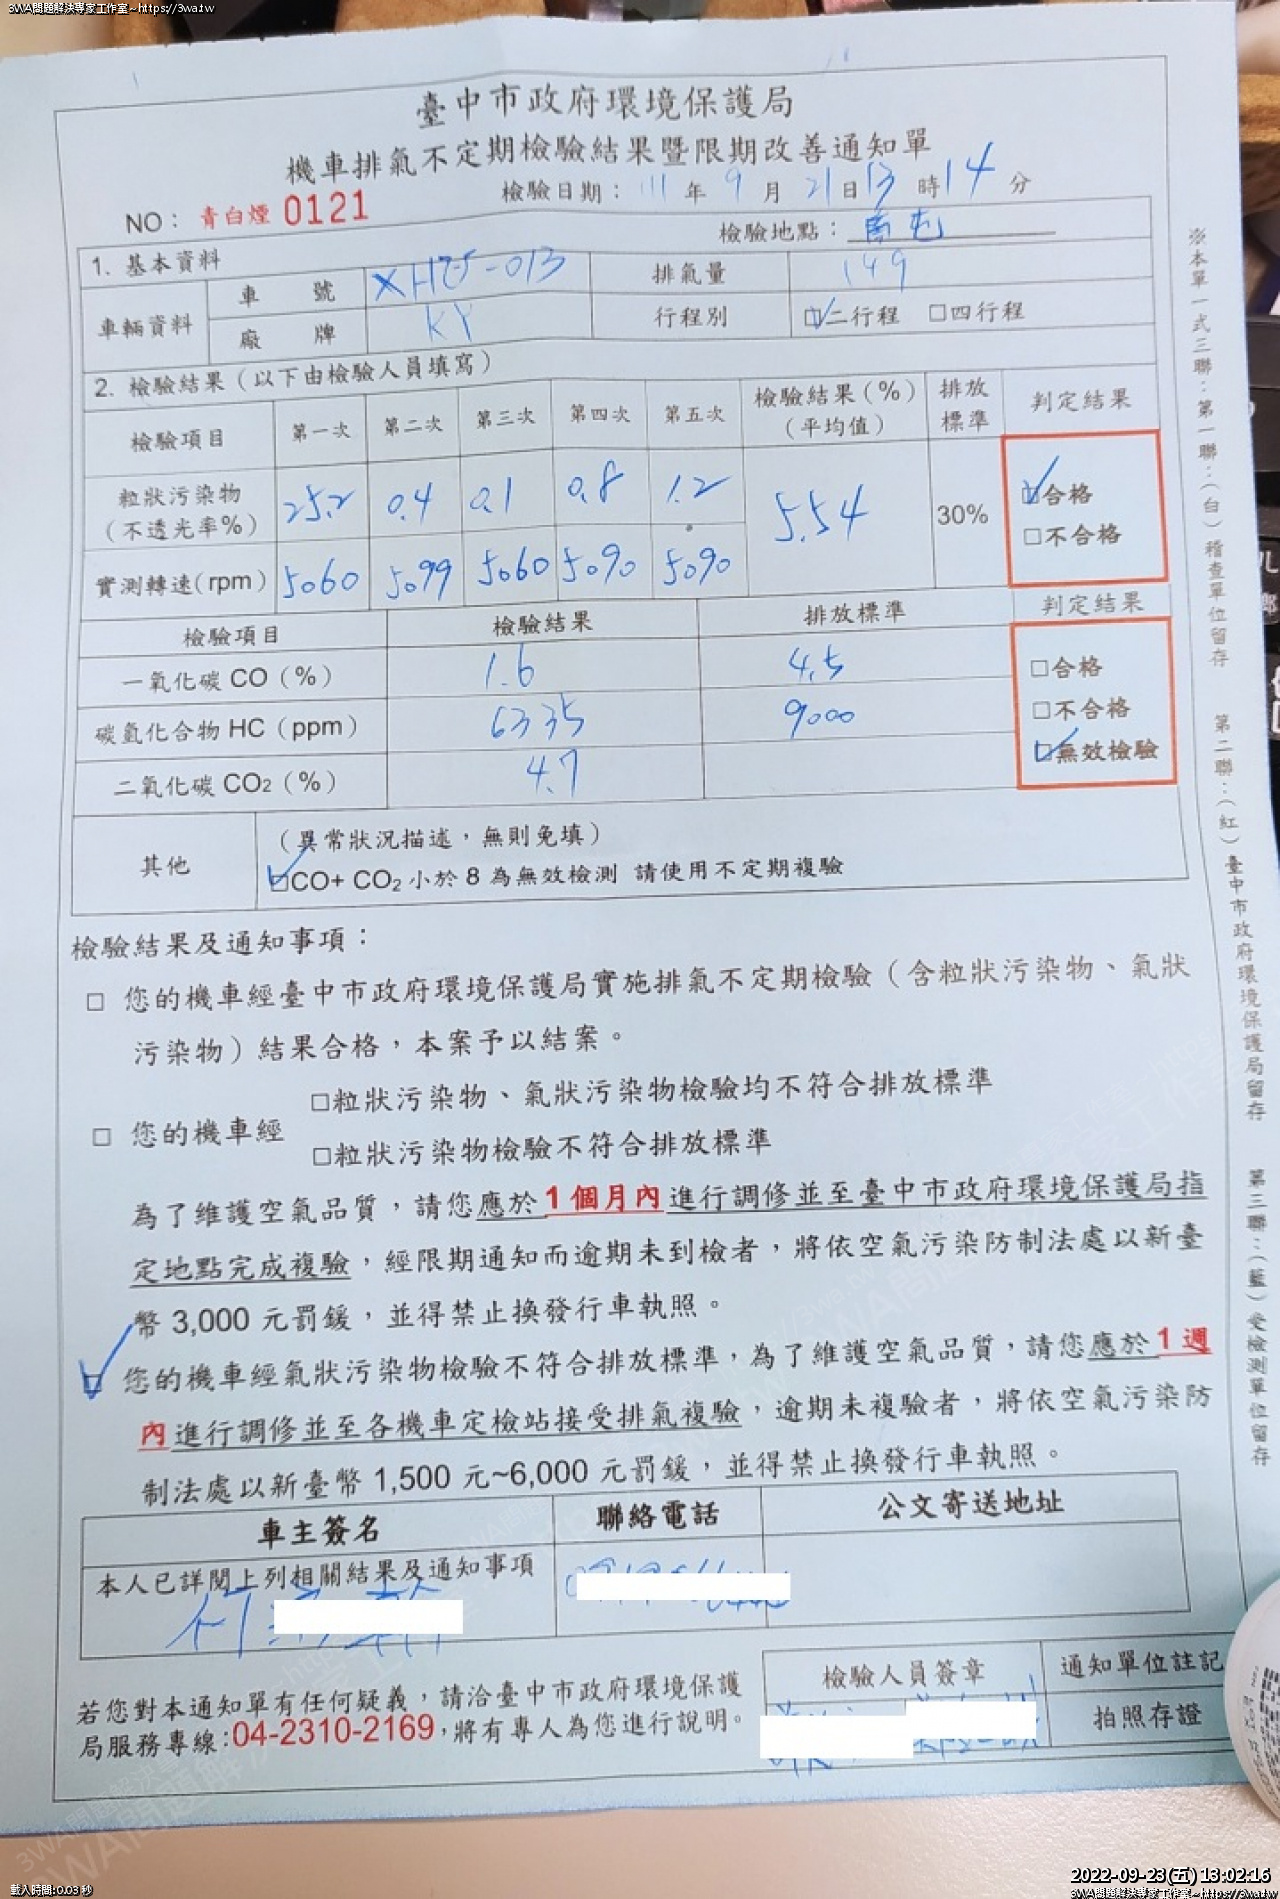 3WA問題解決專家工作室~https://3wa.tw
臺中市政府環境保護局
機車排氣不定期檢驗結果暨限期改善通知單
檢驗日期：111年9月21日13時14分
NO：青白煙 0121
檢驗地點：南屯
1. 基本資料
車輛資料 車號 XHU-013 排氣量 149
廠牌 KY 行程別 ☑二行程 □四行程
2. 檢驗結果（以下由檢驗人員填寫）
檢驗項目 第一次 第二次 第三次 第四次 第五次 檢驗結果（%）（平均值） 排放標準 判定結果
粒狀污染物（不透光率%） 25.2 0.4 0.1 0.8 1.2 5.54 30% ☑合格 □不合格
實測轉速(rpm) 5060 5099 5060 5090 5090
檢驗項目 檢驗結果 排放標準 判定結果
一氧化碳 CO（%） 1.6 4.5 □合格
碳氫化合物 HC（ppm） 6335 9000 □不合格
二氧化碳 CO2（%） 4.7 ☑無效檢驗
其他 （異常狀況描述，無則免填）
☑CO+ CO2 小於 8 為無效檢測 請使用不定期複驗
檢驗結果及通知事項：
□ 您的機車經臺中市政府環境保護局實施排氣不定期檢驗（含粒狀污染物、氣狀
污染物）結果合格，本案予以結案。
□ 您的機車經 □粒狀污染物、氣狀污染物檢驗均不符合排放標準
□粒狀污染物檢驗不符合排放標準
為了維護空氣品質，請您應於 1 個月內進行調修並至臺中市政府環境保護局指
定地點完成複驗，經限期通知而逾期未到檢者，將依空氣污染防制法處以新臺
幣 3,000 元罰鍰，並得禁止換發行車執照。
☑ 您的機車經氣狀污染物檢驗不符合排放標準，為了維護空氣品質，請您應於 1 週
內進行調修並至各機車定檢站接受排氣複驗，逾期未複驗者，將依空氣污染防
制法處以新臺幣 1,500 元~6,000 元罰鍰，並得禁止換發行車執照。
車主簽名 聯絡電話 公文寄送地址
本人已詳閱上列相關結果及通知事項
檢驗人員簽章 通知單位註記
拍照存證
若您對本通知單有任何疑義，請洽臺中市政府環境保護
局服務專線:04-2310-2169，將有專人為您進行說明。
※本單一式三聯：第一聯：（白）稽查單位留存 第二聯：（紅）臺中市政府環境保護局留存 第三聯：（藍）受檢測單位留存
2022-09-23(五) 13:02:16
載入時間:0.03 秒
3WA問題解決專家工作室~https://3wa.tw